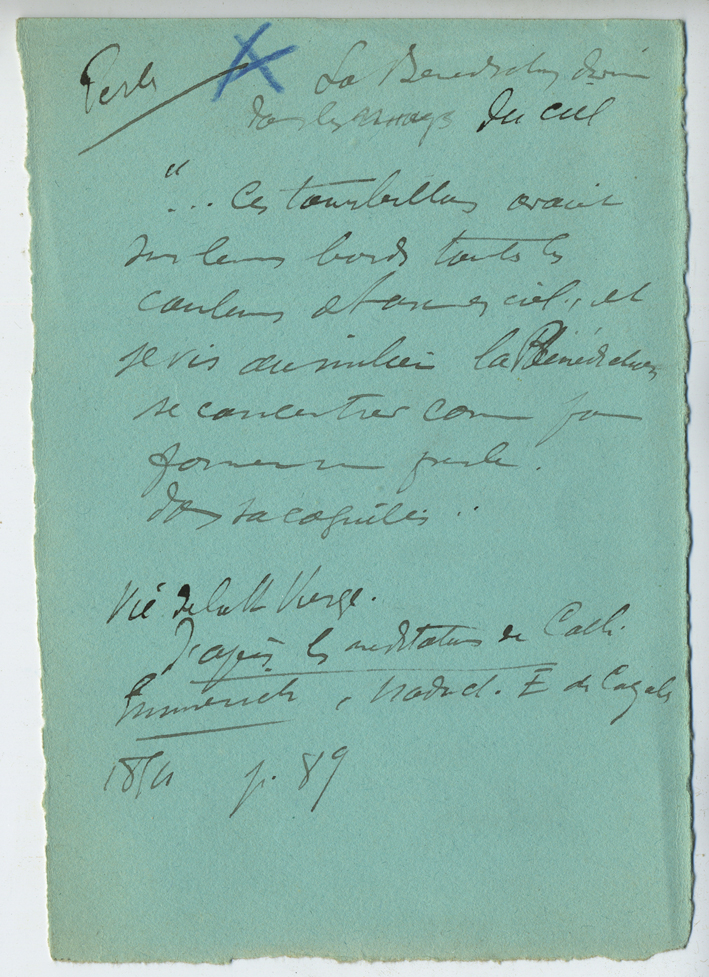 Perle
La Bénédiction divine
dans les nuages du ciel
"... Ces tourbillons avaient
sur leurs bords toutes les
couleurs de l'arc en ciel, et
je vis au milieu la Bénédiction
se concentrer comme pour
former une perle
dans sa coquille ..
Vie de la Ste Vierge.
D'après les méditations de Cath.
Emmerich, traduct. E de Cazalès
p. 89